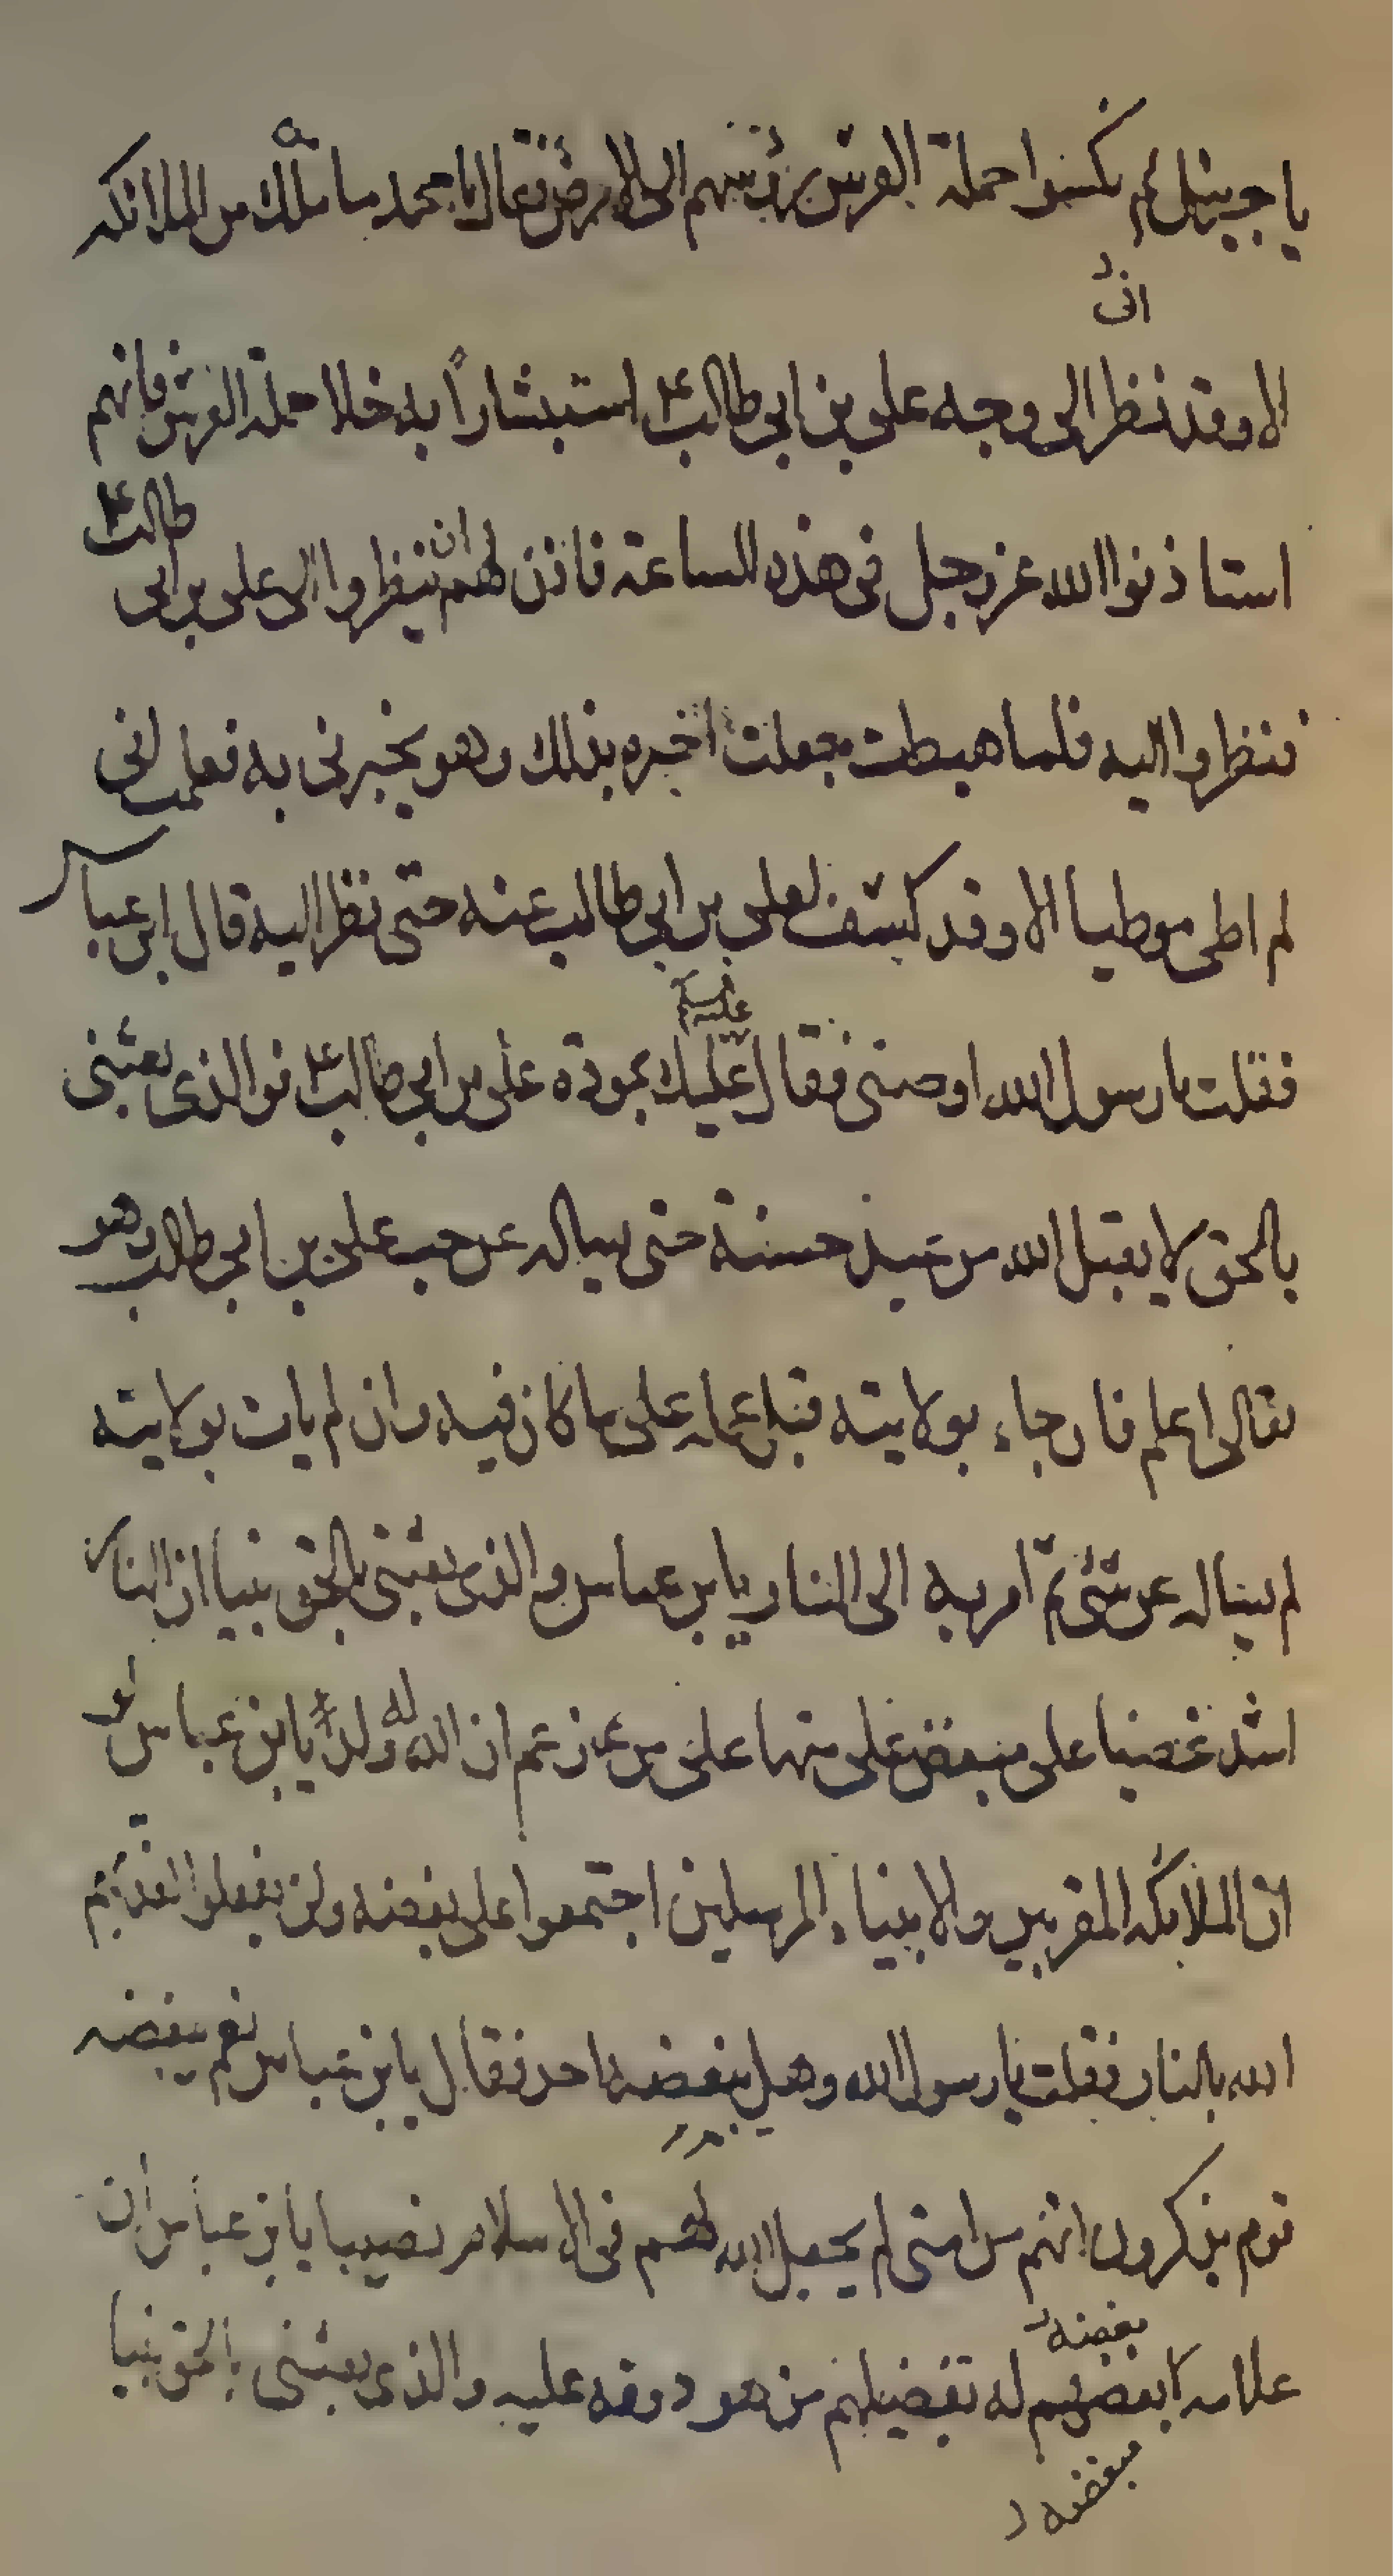 يا جبرئيل لم نكسوا حملة العرش رؤسهم الى الارض فقال يا محمد ما ملك من الملائكه
الا وقد نظر الى وجه على بن ابى طالب ع استبشاراً به خلا حملة العرش فانهم
استاذنوا الله عز وجل فى هذه الساعة فاذن لهم ان ينظروا الى على بن ابى طالب ع
فنظروا اليه فلما هبطت جعلت اخبره بذلك وهو يخبرنى به فعلمت انى
لم اطى موطيا الا وقد كشف لعلى بن ابى طالب عنه حتى نظر اليه قال ابن عباس
فقلت يا رسول الله اوصنى فقال عليك بمودة على بن ابى طالب ع فو الذى بعثنى
بالحق لا يقبل الله من عبد حسنة حتى يساله عن حب على بن ابى طالب وهو
تعالى اعلم فان جاء بولايته قبل عمله على ما كان فيه وان لم يات بولايته
لم يساله عن شئ ثم امر به الى النار يا بن عباس والذى بعثنى بالحق نبيا ان النار
اشد غضبا على مبغض على منها على من زعم ان الله له ولد يا بن عباس لو
ان الملائكه المقربين والانبياء المرسلين اجتمعوا على بغضه ولن يفعلوا لعذبهم
الله بالنار فقلت يا رسول الله وهل يبغضه احد فقال يا بن عباس نعم يبغضه
قوم يذكرون انهم من امتى لم يجعل الله لهم فى الاسلام نصيبا يا بن عباس ان
علامه بغضهم له تفضيلهم من هو دونه عليه والذى بعثنى بالحق نبيا